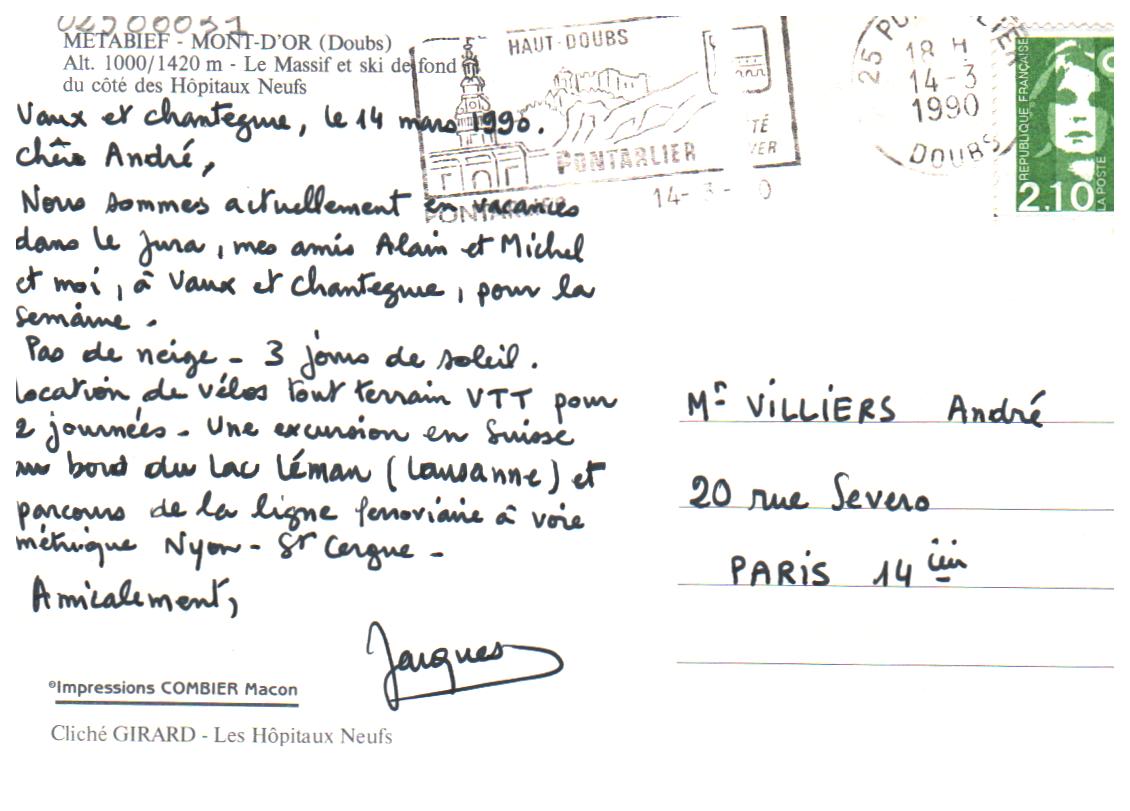 02500031
METABIEF - MONT-D'OR (Doubs)
Alt. 1000/1420 m - Le Massif et ski de fond
du côté des Hôpitaux Neufs
HAUT-DOUBS
PONTARLIER
TÉ
VER
PONTARLIER
14- 3 - 0
25 PONTARLIER
18 H
14-3
1990
DOUBS
REPUBLIQUE FRANÇAISE
2.10
LA POSTE
Vaux et chantegrue, le 14 mars 1990.
Cher André,
Nous sommes actuellement en vacances
dans le Jura, mes amis Alain et Michel
et moi, à Vaux et Chantegrue, pour la
semaine.
Pas de neige - 3 jours de soleil.
Location de vélos tout terrain VTT pour
2 journées - Une excursion en Suisse
au bord du Lac Léman (Lausanne) et
parcours de la ligne ferroviaire à voie
métrique Nyon - St Cergue -
Amicalement,
Jacques
Mr VILLIERS André
20 rue Severo
PARIS 14 ièm
©Impressions COMBIER Macon
Cliché GIRARD - Les Hôpitaux Neufs